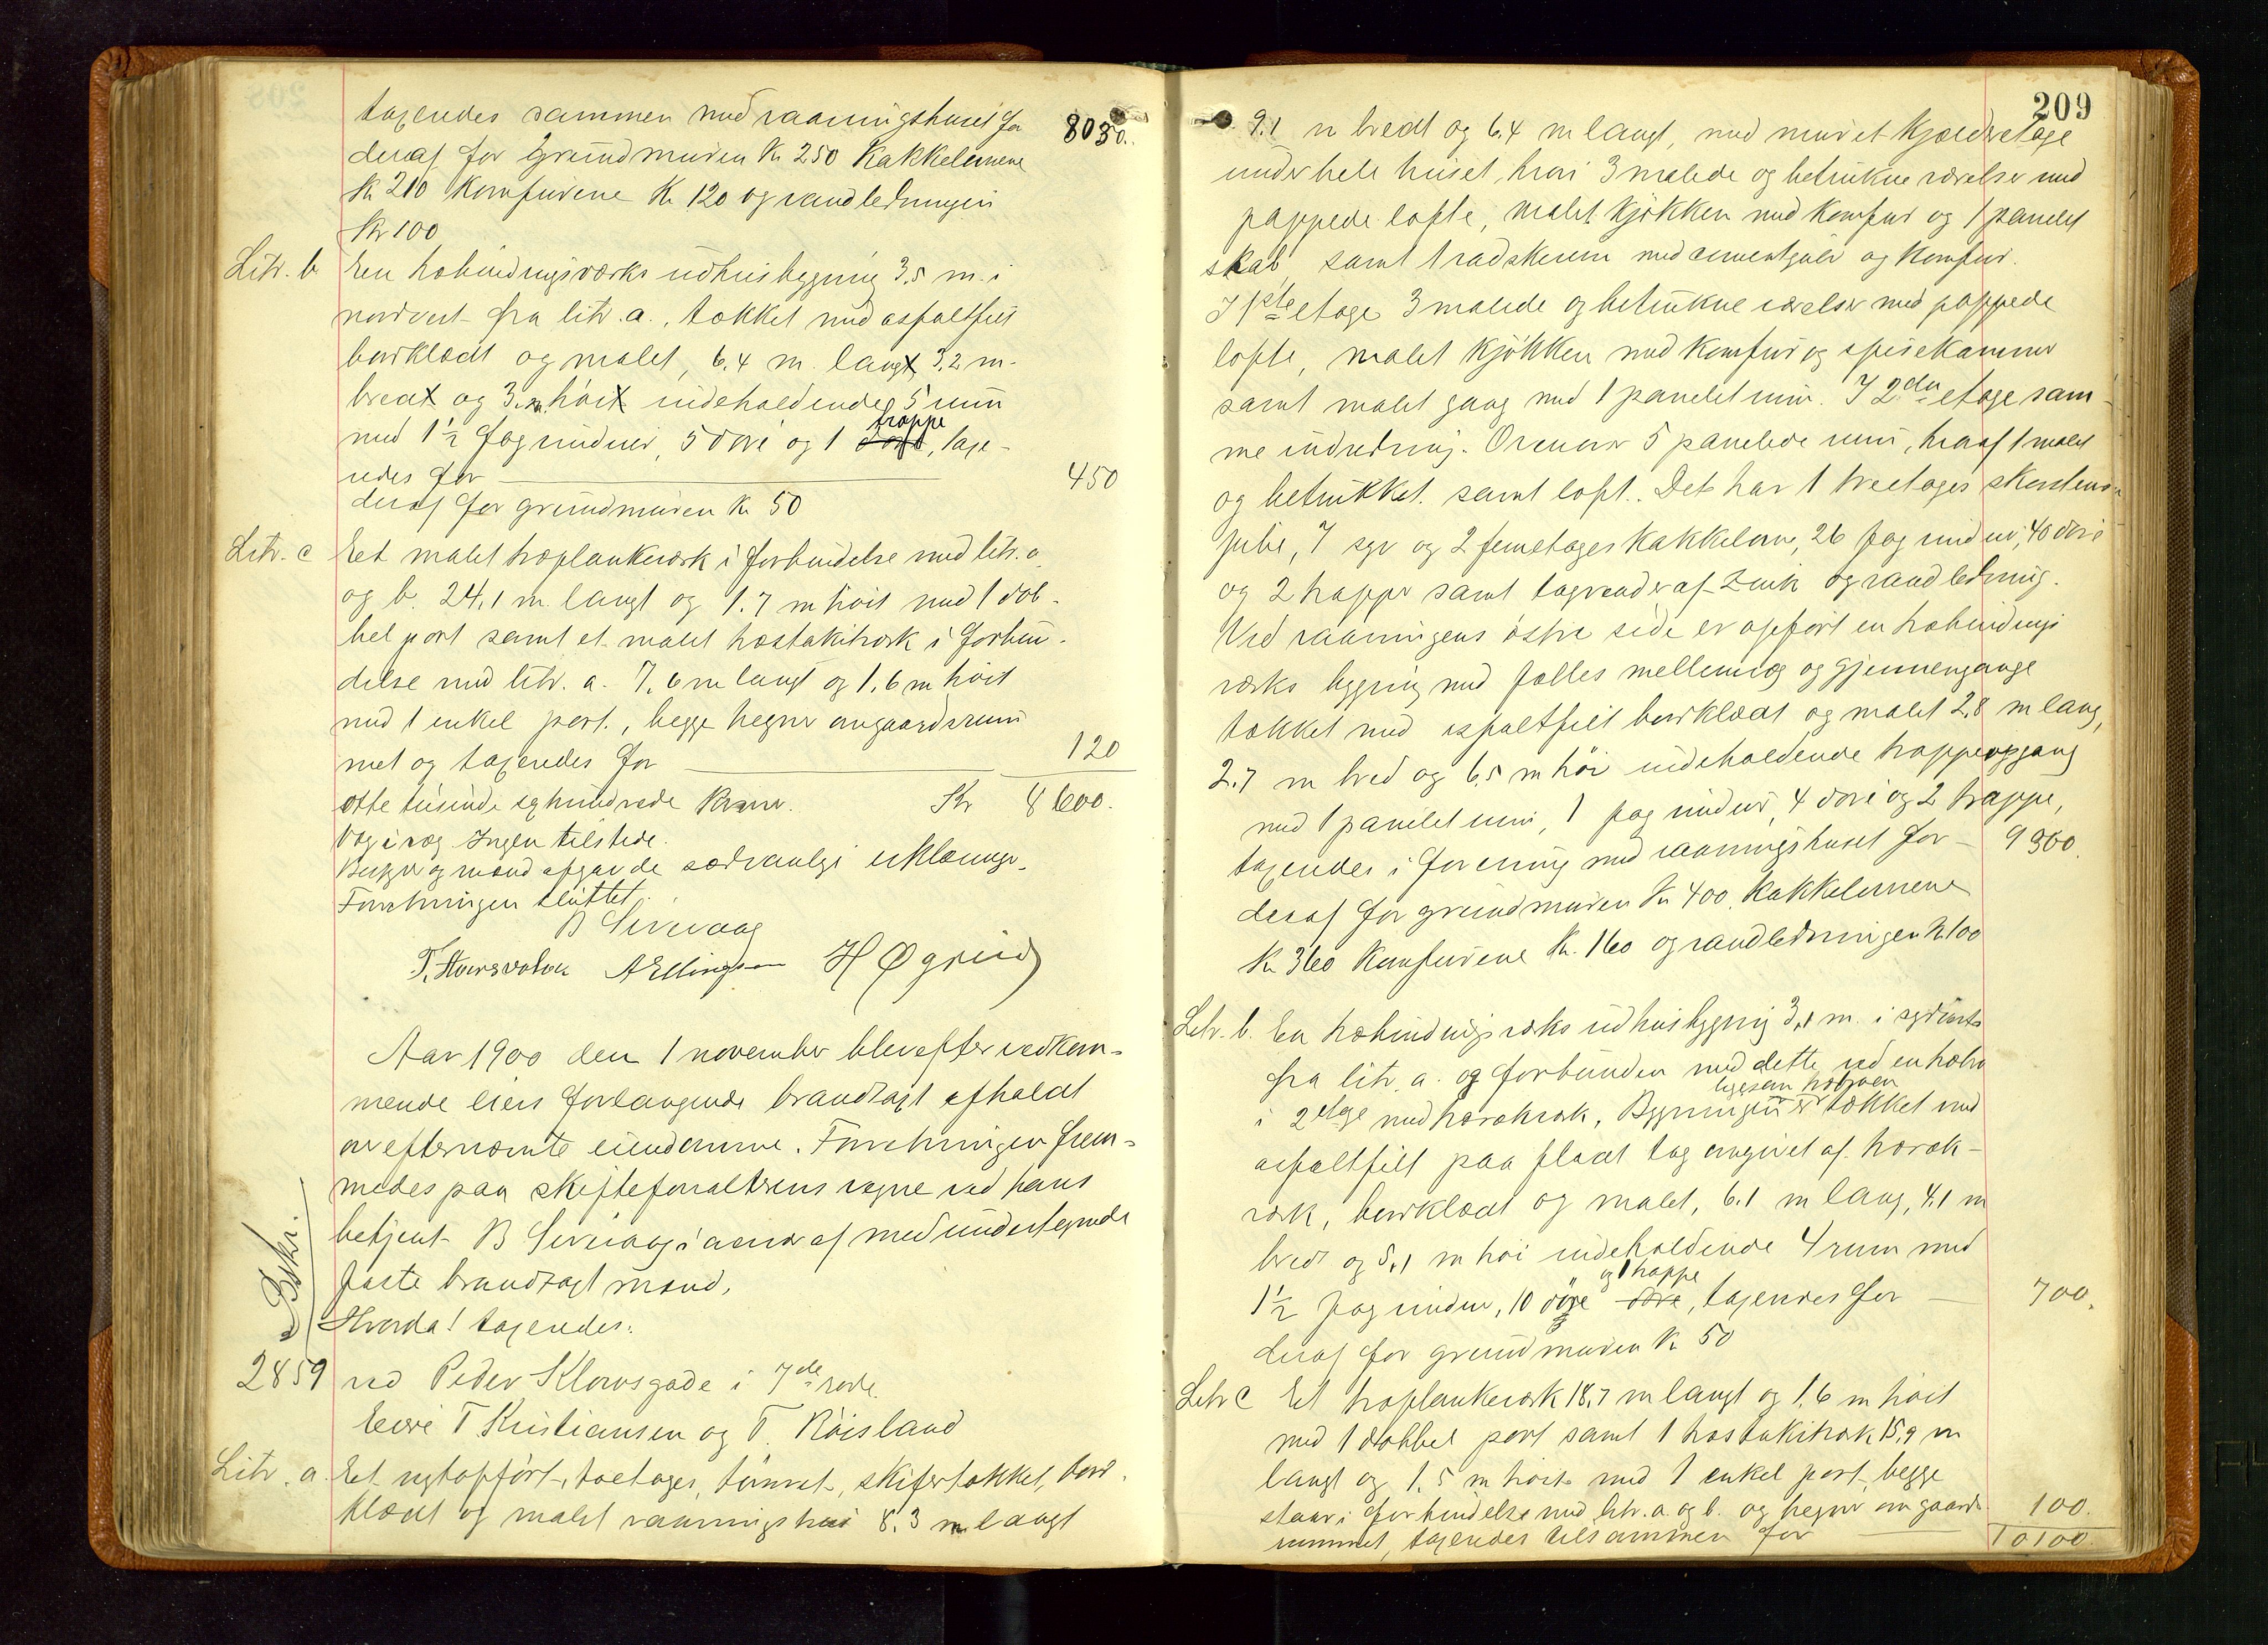 taxeredes sammen med vaaningshuset for 8030.
deraf for Grundmuren Kr 250 Kakkelovnene
Kr 210 Komfurene Kr 120 og vandledningen
Kr 100
Litr. b En træbindingsværks udhusbygning 3.5 m. i
nordvest fra litr. a., tækket med asfaltfilt
bordklædt og malet, 6.4 m. langt 3.2 m.
bredt og 3. m. høit indeholdende 5 rum
med 1½ fag vinduer, 5 døre og 1 trappe, taxe-
redes for 450
deraf for grundmuren Kr 50
Litr. c Et malet træplankeværk i forbindelse med litr. a
og b. 24,1 m. langt og 1.7 m høit med 1 dob-
bel port samt et malet træstakitværk i forbin-
delse med litr. a. 7,6 m langt og 1,6 m høit
med 1 enkel port., begge hegner om gaardsrum
met og taxeredes for 120
otte tusinde sexhundrede kroner. Kr 8600.
Vag i væg Ingen tilstede.
Bestyrer og mænd afgav de sædvanlige erklæringer.
Forretningen sluttet.
B Sirevaag
T. Hoersvolen A Ellingsen H Øgreid
Aar 1900 den 1 november blev efter vedkom-
mende eiers forlangende brandtaxt afholdt
over efternævnte eiendomme. Forretningen frem-
medes paa skifteforvalterens vegne ved hans
betjent B Sirevaag i nærvær af med undertegnede
faste brandtaxtmænd.
Hvorda! taxeredes:
Beskr.
2859 ved Peder Klowsgade i 7de rode
Eiere T Kristiansen og T. Røisland
Litr. a. Et nytopført, toetages, tømret, skifertækket, bord-
klædt og malet vaaningshus 8.3 m langt
209
9.1 m bredt og 6.4 m langt, med muret Kjælderetage
under hele huset, hvori 3 malede og betrukne værelser med
pappede lofte, malet kjøkken med komfur og 1 panelet
skab, samt 1 vadskerum med cementgulv og komfur.
I 1ste etage 3 malede og betrukne værelser med pappede
lofte, malet kjøkken med komfur og spisekammer
samt malet gang med 1 panelet rum. I 2den etage sam-
me indredning. Ovenover 5 panelede rum, hvoraf 1 malet
og betrukket. samt loft. Det har 1 treetages skorstens-
pibe, 7 syv og 2 femetages Kakkelovne, 26 fag vinduer, 40 døre
og 2 trapper samt tagrender af Zink og vandledning.
Ved vaaningens østre side er opført en træbindings
værks bygning med fælles mellemvæg og gjennemgange
tækket med asfaltfilt bordklædt og malet 2,8 m lang,
2.7 m bred og 6,5 m høi indeholdende trappeopgang
med 1 panelet rum, 1 fag vinduer, 4 døre og 2 trappe,
taxeredes i forening med vaaningshuset for 9300.
deraf for grundmuren Kr 400, Kakkelovnene
Kr 360 Komfurene Kr. 160 og vandledningen Kr 100
Litr. b. En træbindingsværks udhusbygning 3,1 m. i sydvest
fra litr. a. og forbunden med dette ved en træbro
i 2 etage med trærækværk, Bygningen er ligesom træbroen tækket med
asfaltfilt paa fladt tag omgivet af træræk-
værk, bordklædt og malet, 6.1 m lang, 4,1 m
bred og 5,1 m høi indeholdende 4 rum med
1½ fag vinduer, 10 døre og 1 trappe, taxeredes for 700.
deraf for grundmuren Kr 50
Litr c Et træplankeværk 18,7 m langt og 1,6 m høit
med 1 dobbel port samt 1 træstakitværk 15,9 m
langt og 1,5 m høit med 1 enkel port, begge
staar i forbindelse med litr. a. og b. og hegner om gaards 100.
rummet, taxeredes tilsammen for 10100